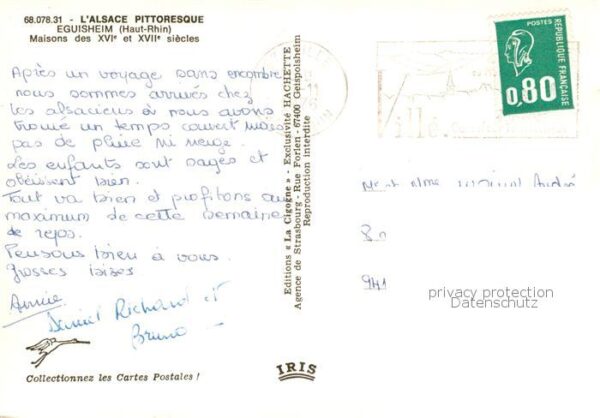 68.078.31 - L'ALSACE PITTORESQUE
EGUISHEIM (Haut-Rhin)
Maisons des XVIe et XVIIe siècles
Après un voyage sans encombre
nous sommes arrivés chez
les alsaciens où nous avons
trouvé un temps couvert mais
pas de pluie ni neige.
Les enfants sont sages et
obéissent bien.
Tout va bien et profitons au
maximum de cette semaine
de repos.
Pensons bien à vous.
Grosses bises
Annie
Daniel Richard et
Bruno
Collectionnez les Cartes Postales !
Editions « La Cigogne » - Exclusivité HACHETTE
Agence de Strasbourg - Rue Forlen - 67400 Geispolsheim
Reproduction interdite
IRIS
POSTES
0,80
REPUBLIQUE FRANÇAISE
Villé
privacy protection
Datenschutz